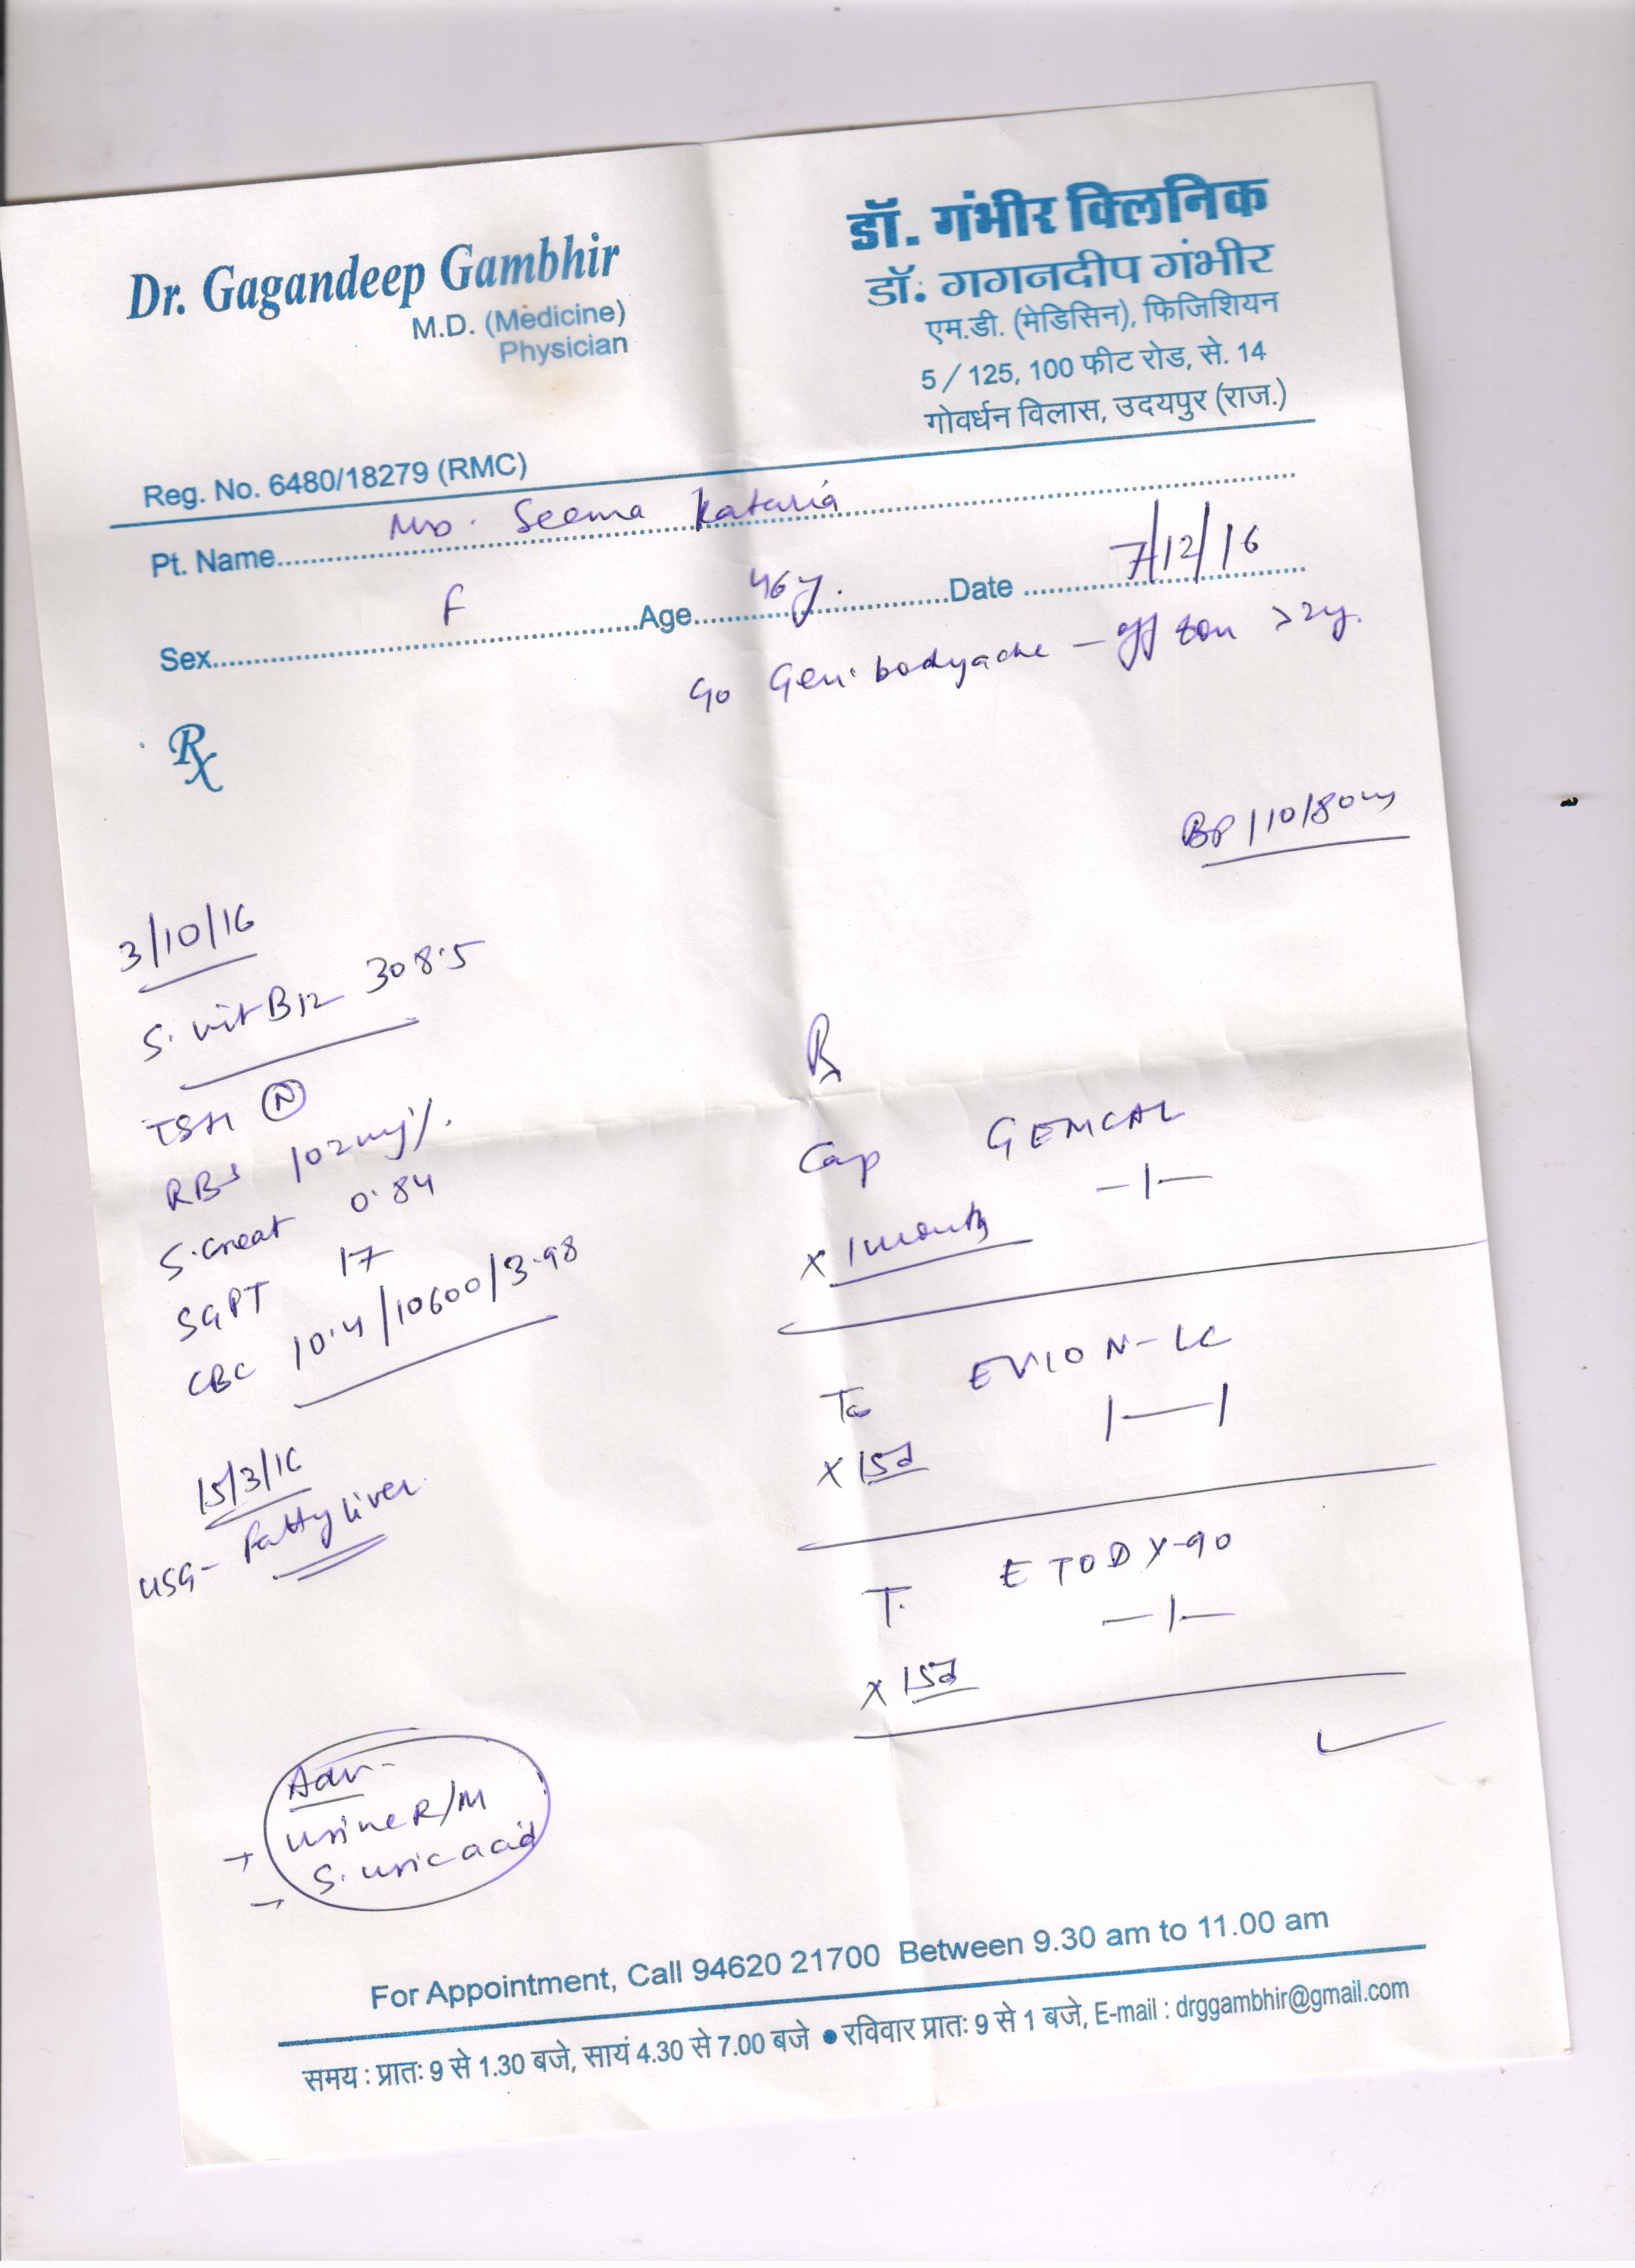 Dr. Gagandeep Gambhir
M.D. (Medicine)
Physician
डॉ. गंभीर क्लिनिक
डॉ. गगनदीप गंभीर
एम.डी. (मेडिसिन), फिजिशियन
5 / 125, 100 फीट रोड, से. 14
गोवर्धन विलास, उदयपुर (राज.)
Reg. No. 6480/18279 (RMC)
Pt. Name Mrs. Seema Kataria
Sex F Age 46y. Date 7/12/16
Gen. bodyache - off >2y.
Rx
BP 110/80
3/10/16
S. vit B12 308.5
TSH N
RBS 102mg%
S. creat 0.84
SGPT 17
CBC 10.4/10600/3.98
15/3/16
USG- Fatty liver
Rx
Cap GEMCAL
-1-
x 1 month
T. EVION-LC
1-1
x 15d
T. ETODY-90
-1-
x 15d
Adv-
→ Urine R/M
→ S. uric acid
For Appointment, Call 94620 21700 Between 9.30 am to 11.00 am
समय : प्रातः 9 से 1.30 बजे, सायं 4.30 से 7.00 बजे ● रविवार प्रातः 9 से 1 बजे, E-mail : drggambhir@gmail.com